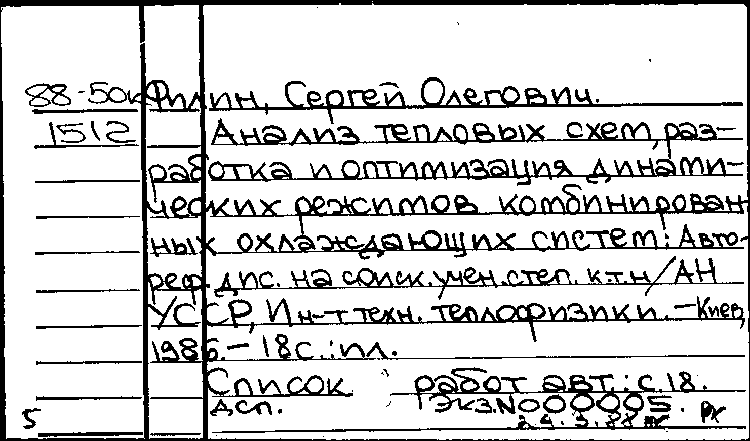 88-50к Филин, Сергей Олегович.
1512 Анализ тепловых схем, раз-
работка и оптимизация динами-
ческих режимов комбинирован
ных охлаждающих систем: Авто-
реф. дис. на соиск. учен. степ. к.т.н/АН
УССР, Ин-т техн. теплофизики. - Киев,
1986. - 18с.: ил.
Список работ авт.: с.18.
5 дсп. Экз.N000005.
24.3.88